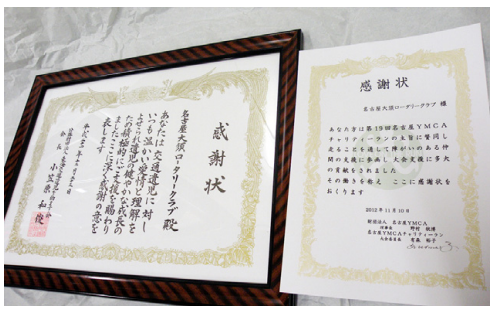 感謝状
名古屋大須ロータリークラブ 殿
あなたは 交通遺児に対し
いつも温かい愛情と理解を
よせられ遺児の健やかな成長の
ため積極的にご支援を賜わり
ましたここに深く感謝の意を
表します
感謝状
名古屋大須ロータリークラブ 様
あなた方は第19回名古屋YMCA
チャリティーランの主旨に賛同し
走ることを通して障がいのある仲
間の支援に参画し 大会支援に多大
の貢献をされました
その働きを称え ここに感謝状を
おくります
2012年11月10日
財団法人 名古屋YMCA
名古屋YMCAチャリティーラン